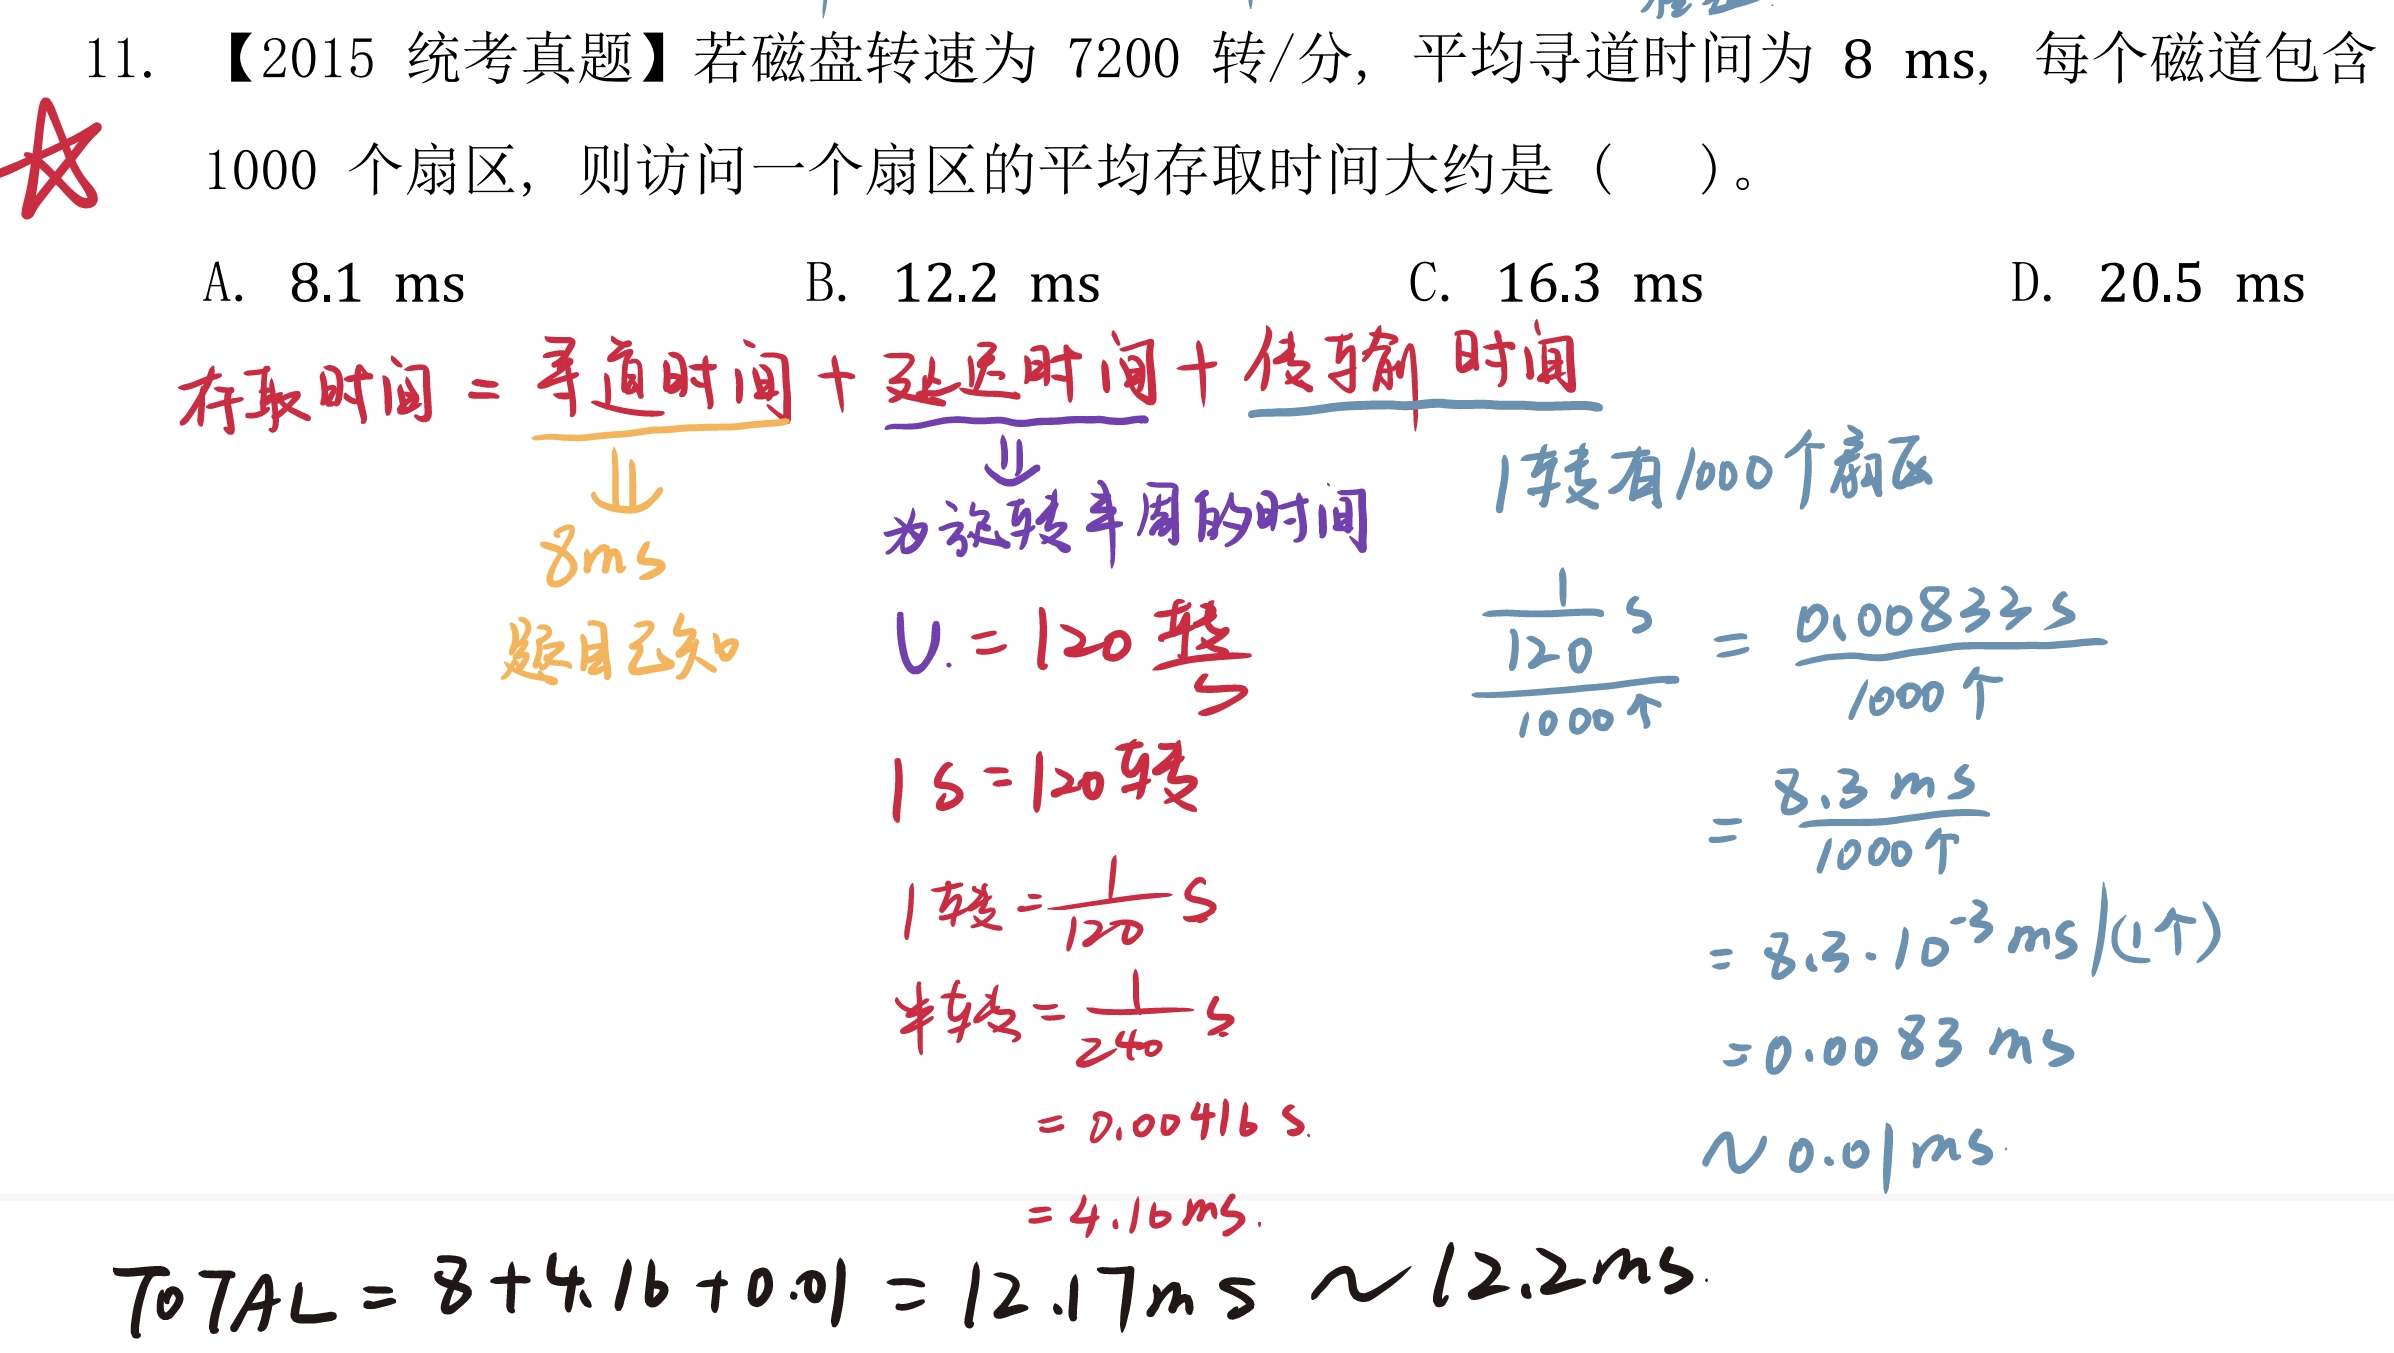 11. 【2015 统考真题】若磁盘转速为 7200 转/分, 平均寻道时间为 8 ms, 每个磁道包含
1000 个扇区, 则访问一个扇区的平均存取时间大约是 ( )。
A. 8.1 ms B. 12.2 ms C. 16.3 ms D. 20.5 ms
存取时间 = 寻道时间 + 延迟时间 + 传输时间
⇓
8ms
题目已知
⇓
为旋转半周的时间
U. = 120 转/s
1 s = 120转
1转 = 1/120 s
半转 = 1/240 s
= 0.00416 s.
= 4.16 ms.
1转有1000个扇区
(1/120 s)/1000个 = 0.00833 s/1000个
= 8.3 ms/1000个
= 8.3·10^-3 ms/(1个)
= 0.0083 ms
~ 0.01 ms.
TOTAL = 8 + 4.16 + 0.01 = 12.17 ms ~ 12.2 ms.